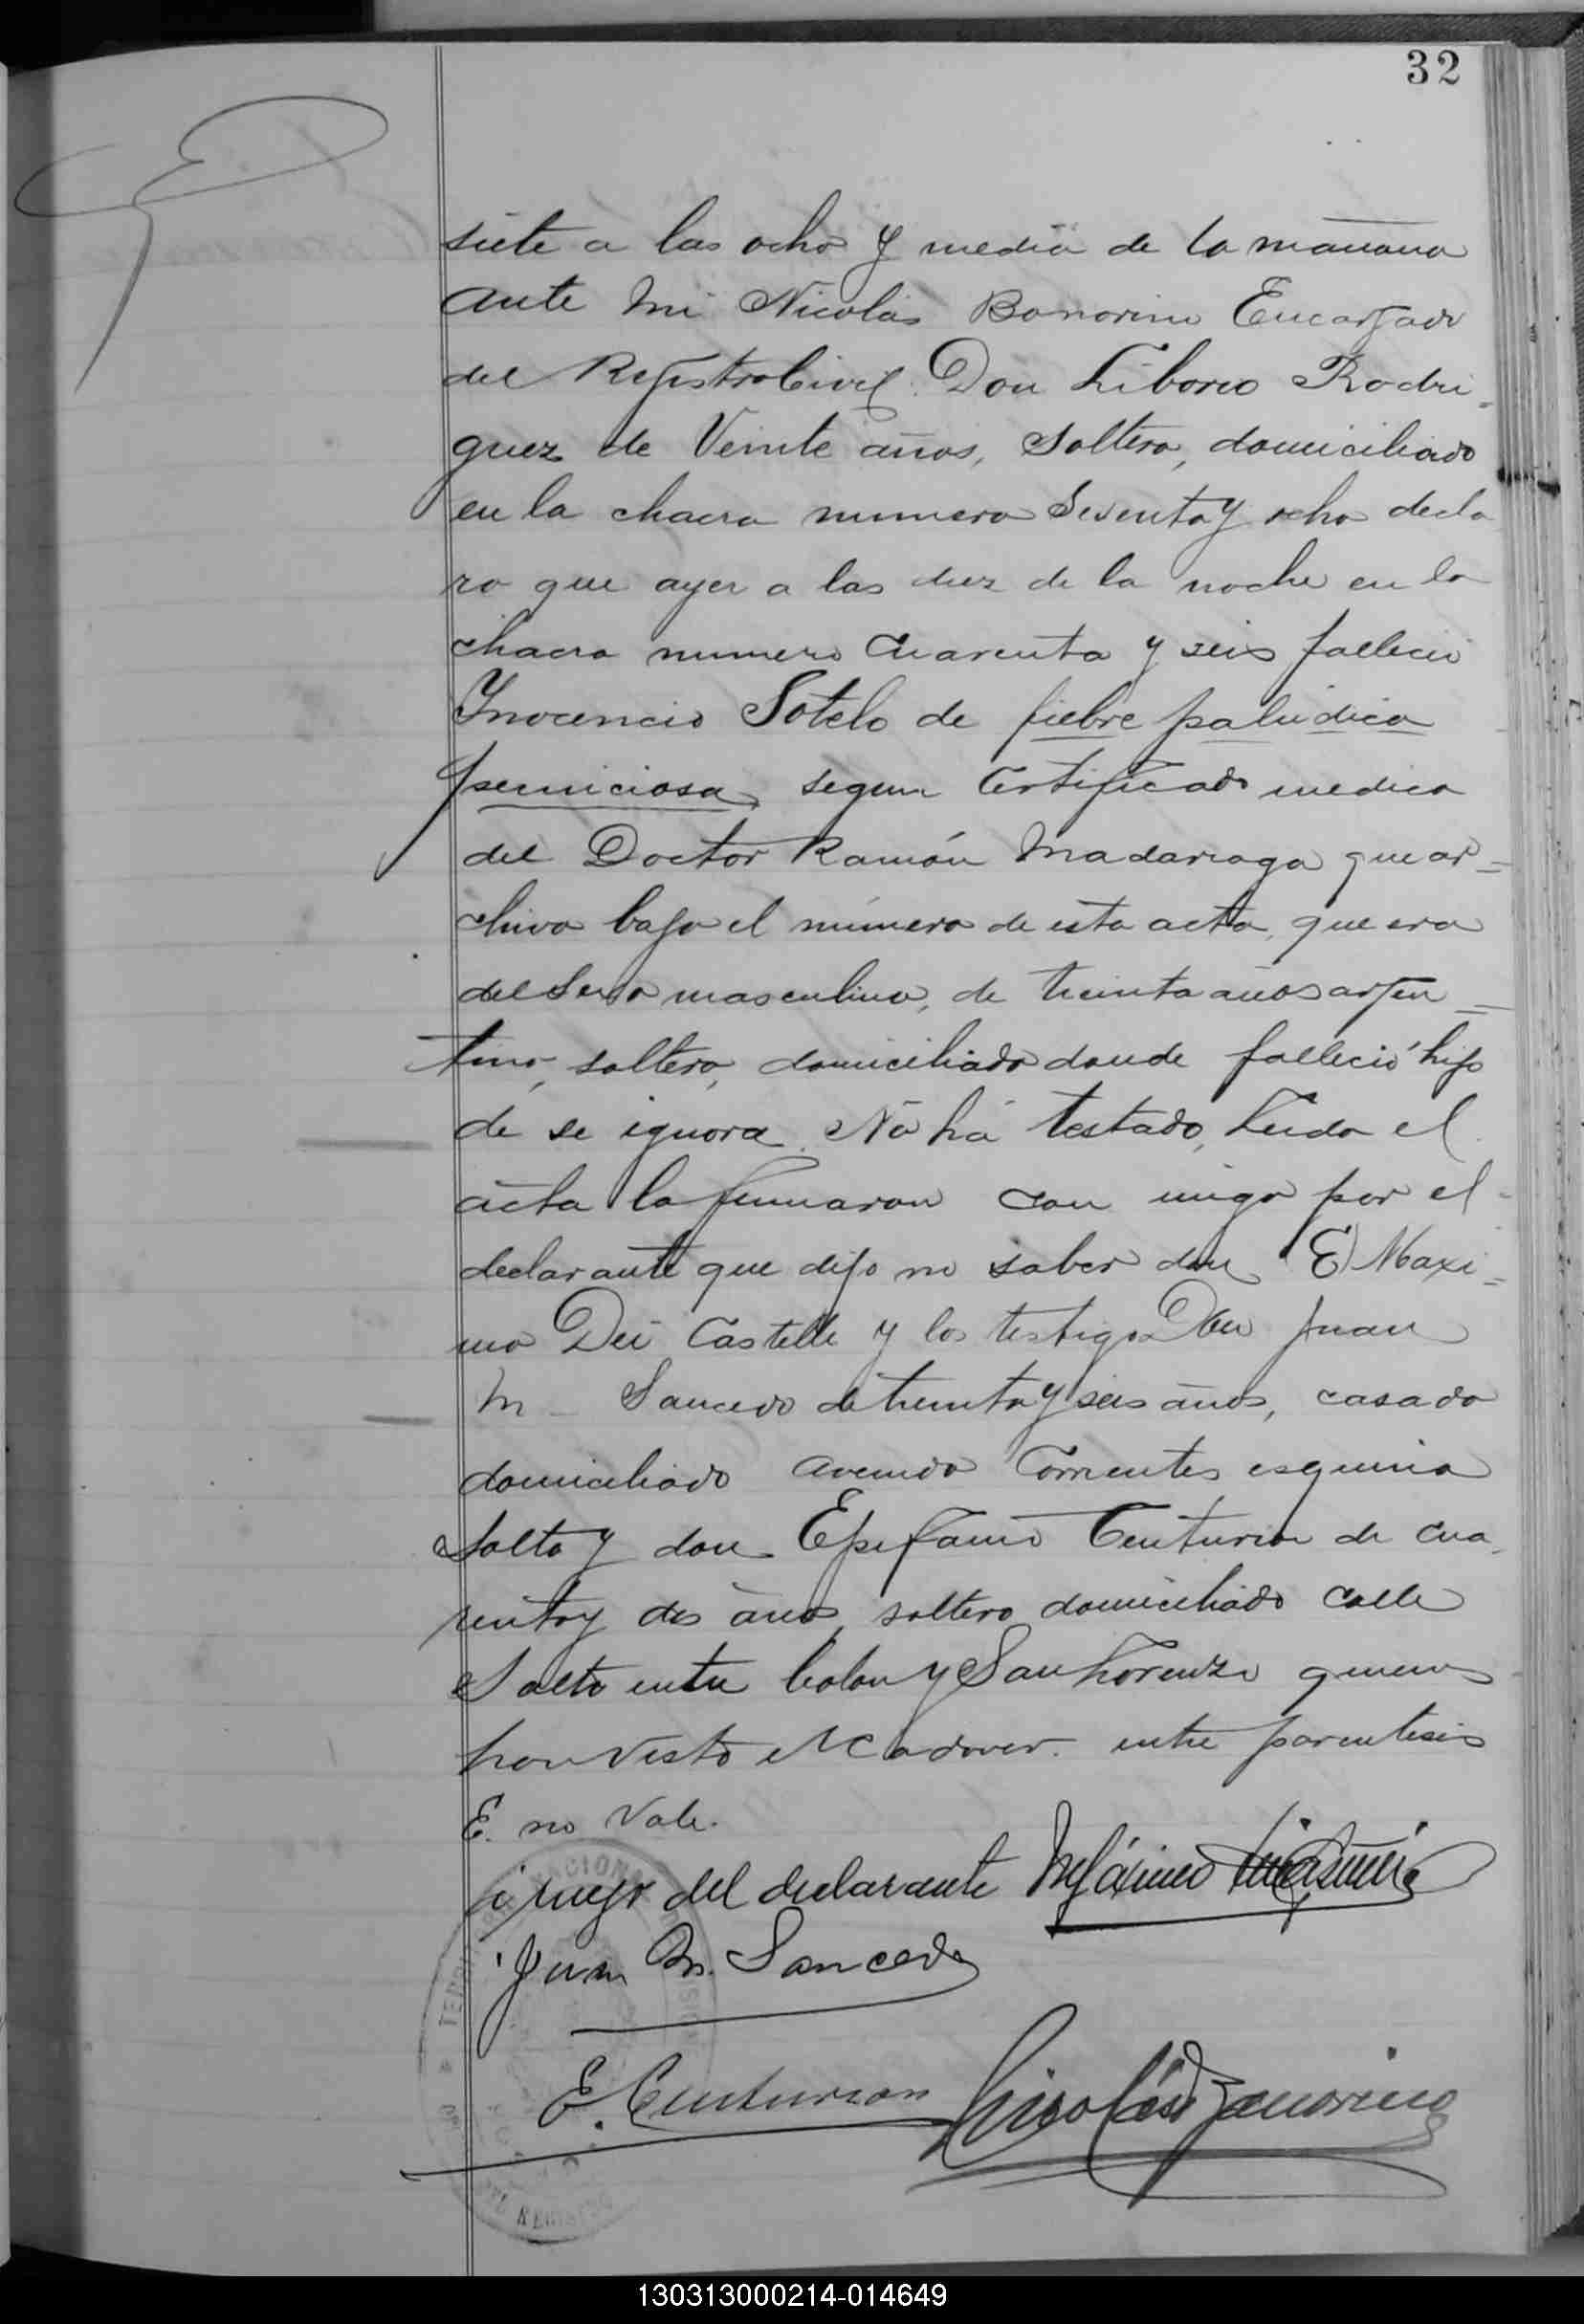 32
siete a las ocho y media de la mañana
ante mi Nicolás Bonorino Encargado
del Registro Civil. Don Liborio Rodri-
guez de Veinte años, Soltero, domiciliado
en la chacra numero Sesenta y ocho decla
ro que ayer a las diez de la noche en la
chacra numero Cuarenta y seis falleció
Inocencio Sotelo de fiebre palúdica
perniciosa, segun Certificado medico
del Doctor Ramón Madariaga que ar=
chivo bajo el número de esta acta, que era
del Sexo masculino, de treinta años arjen=
tino, soltero, domiciliado donde falleció hijo
de se ignora. No há testado, Leida el
acta la firmaron con migo por el
declarante que dijo no saber don (E) Maxi=
mo Dei Castelli y los testigos Don Juan
M Saucedo de treinta y seis años, casado
domiciliado avenida Corrientes esquina
Salta y don Epifanio Centurion de cua
renta y dos años, soltero domiciliado calle
Salta entre Colon y San Lorenzo quienes
han visto el cadaver. entre parentesis
E. no Vale.
á ruego del declarante Máximo
Juan M. Saucedo
E. Centurion Nicolás Bonorino
TERRI NACIONAL MISION
REGISTRO
130313000214-014649